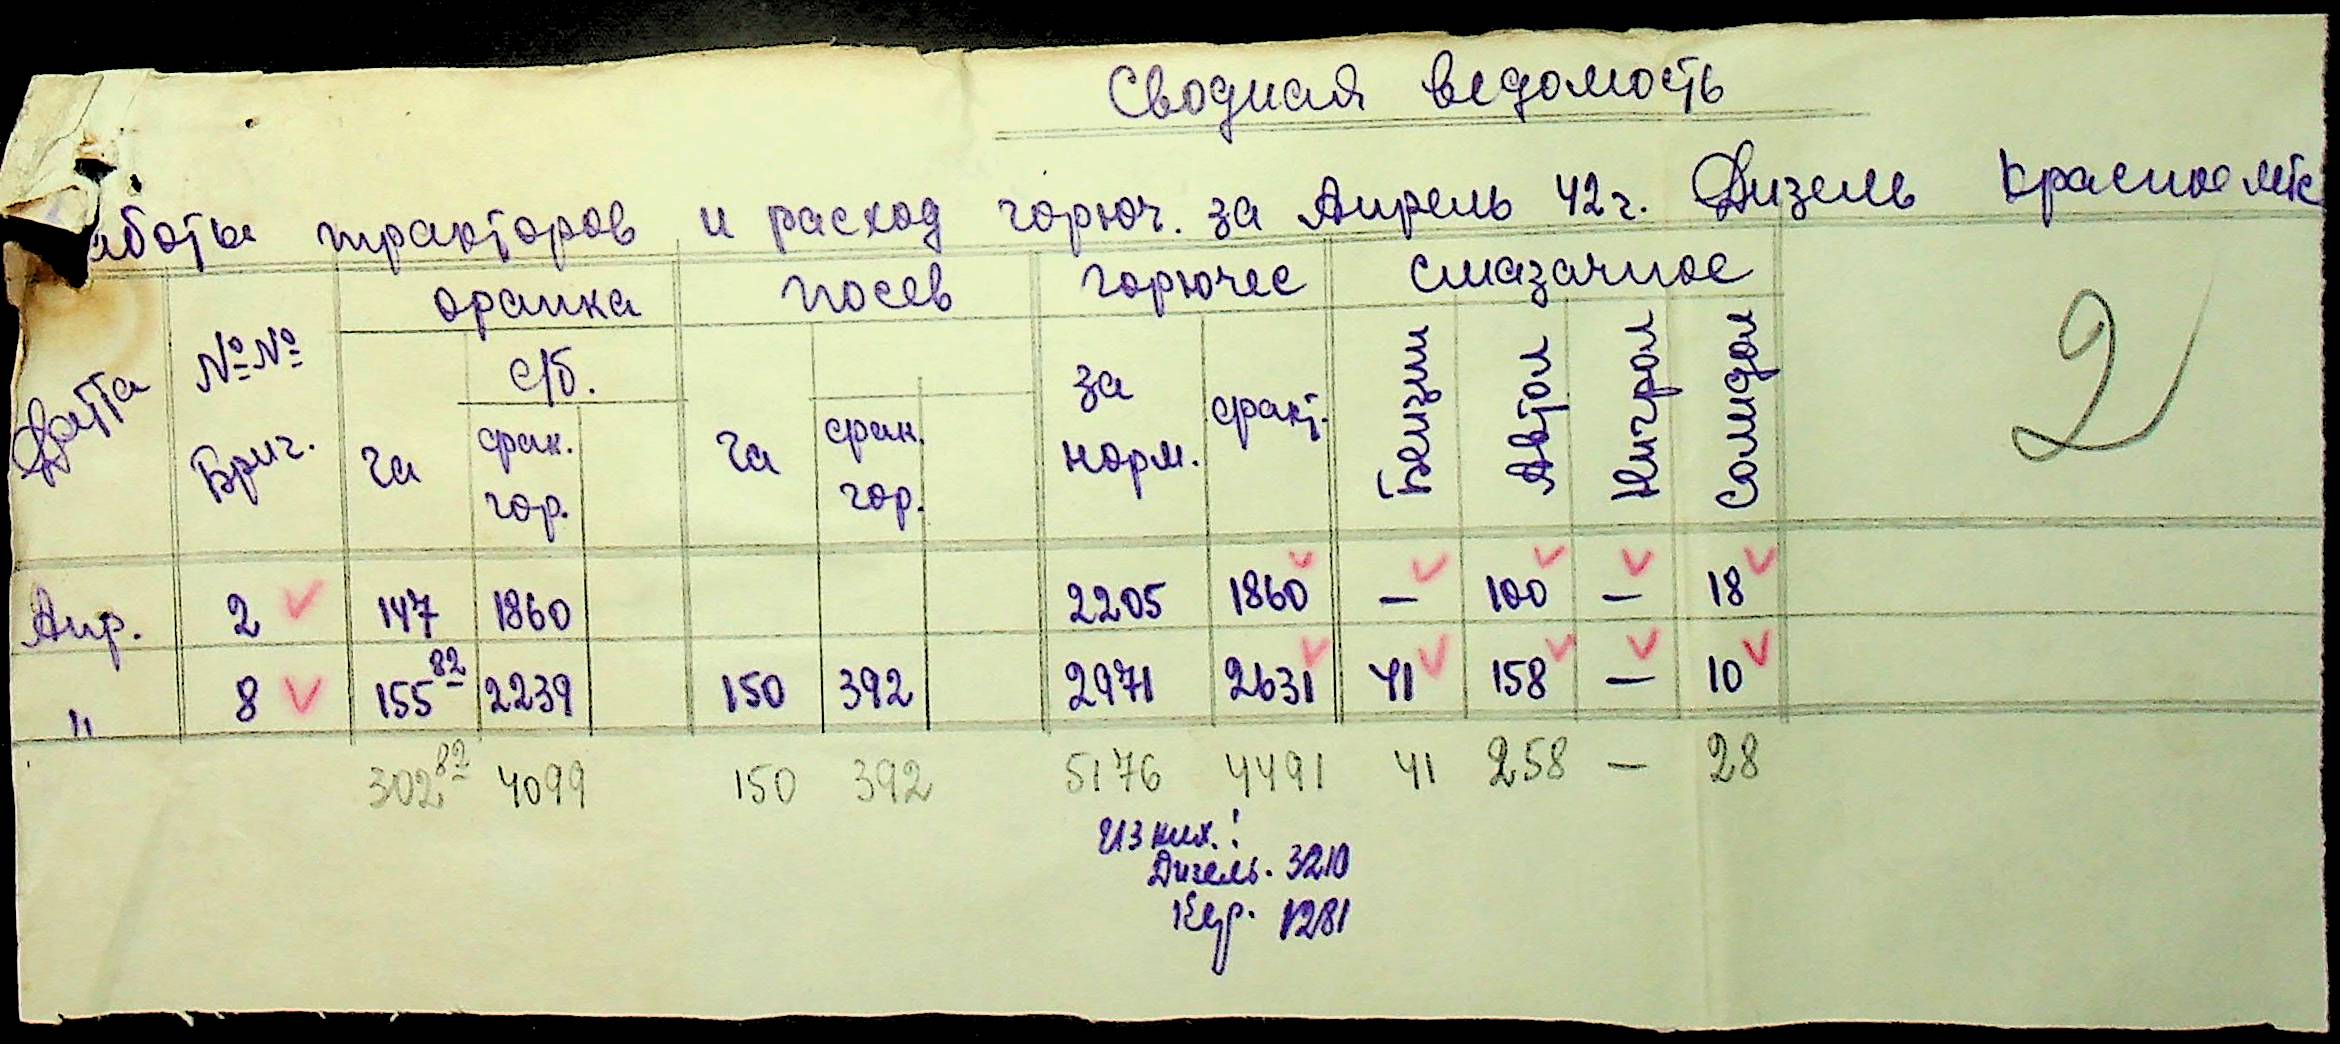 Сводная ведомость
работы тракторов и расход горюч. за Апрель 42 г. Дизель Красное мтс
Датта №№ Бриг. оранка посев горючее смазачное 2
с/б.
га фак. гор. га фак. гор. за норм. факт. Бензин Автол Нигрол Солидол
Апр. 2 147 1860 2205 1860 – 100 – 18
" 8 155 82 2239 150 392 2971 2631 41 158 – 10
302 82 4099 150 392 5176 4491 41 258 – 28
Из них:
Дизель. 3210
Кер. 1281